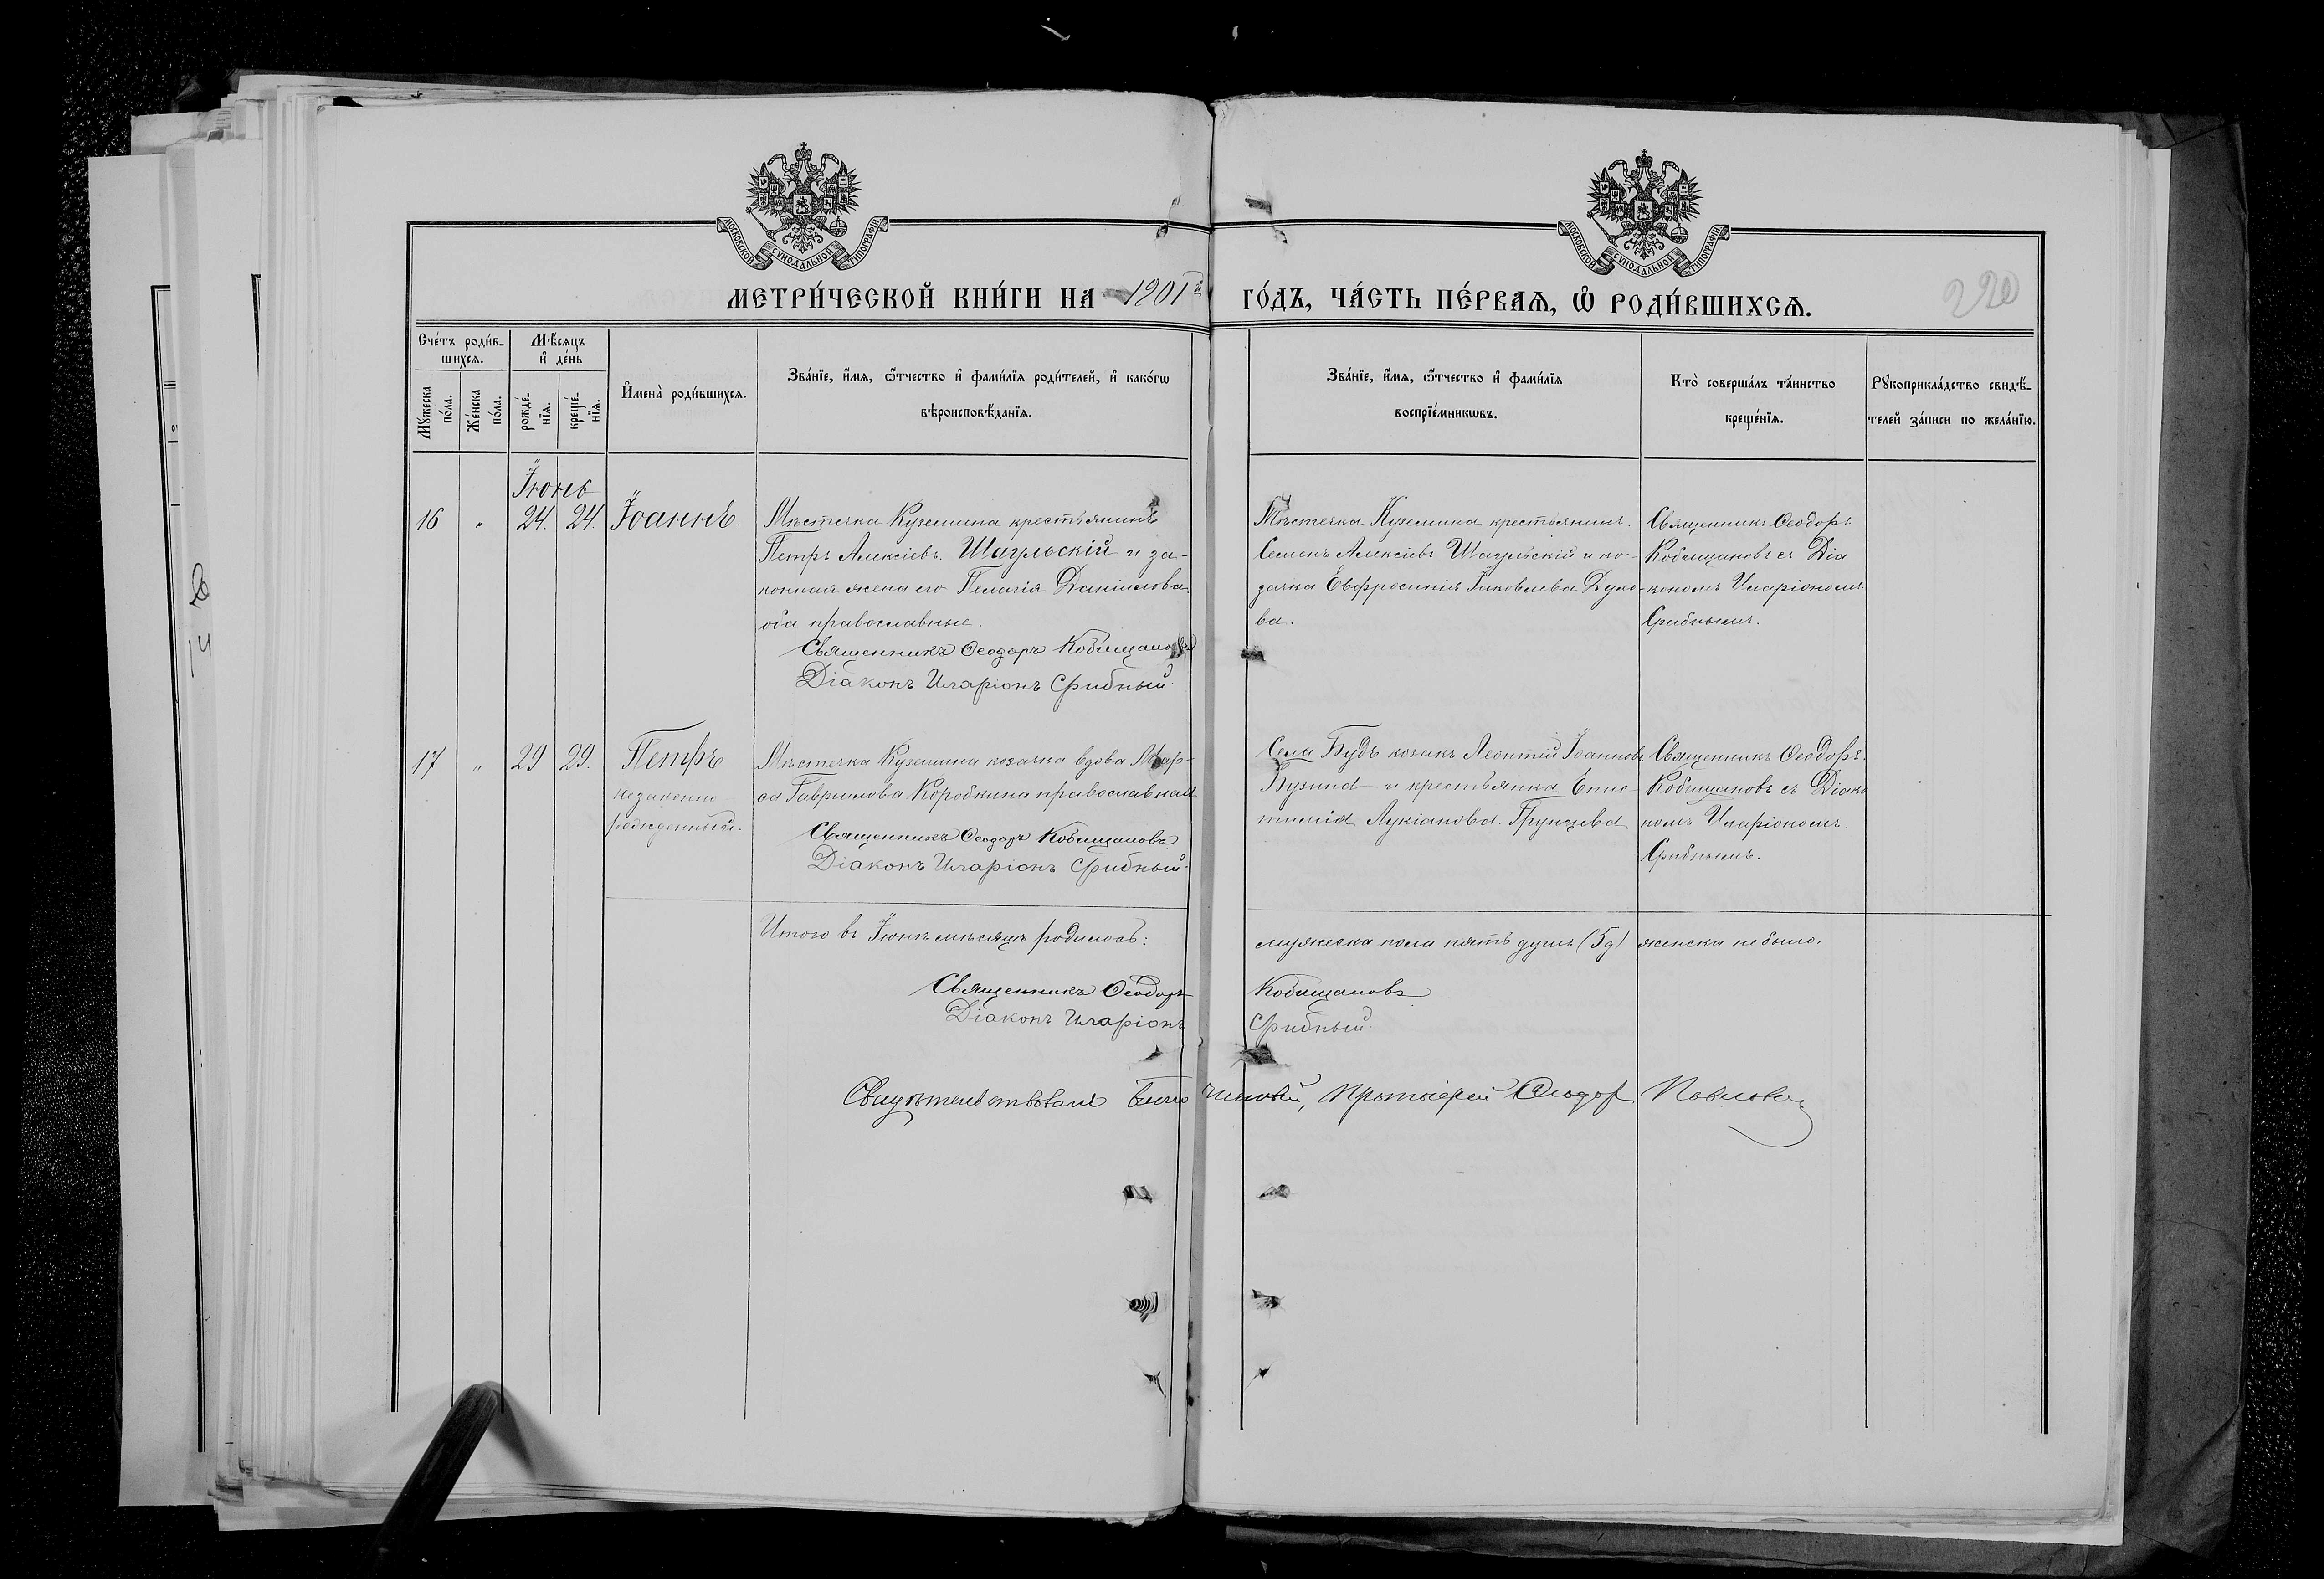 МОСКОВСКОЙ СѴНОДАЛЬНОЙ ТИПОГРАФІИ
МОСКОВСКОЙ СѴНОДАЛЬНОЙ ТИПОГРАФІИ
МЕТРИ́ЧЕСКОЙ КНИ́ГИ НА 1901й ГО́ДЪ, ЧА́СТЬ ПЕ́РВАѦ, Ѽ РОДИ́ВШИХСѦ.
220
Сче́тъ роди́в-
шихсѧ.
Мѣ́сѧцъ
и҆ де́нь
Мꙋ́жеска по́ла.
Же́нска по́ла.
рожде́-
нїѧ.
креще́-
нїѧ.
И҆мена̀ роди́вшихсѧ.
Зва́нїе, и҆́мѧ, ѻ҆́тчество и҆ фами́лїѧ роди́телей, и҆ како́гѡ
вѣроисповѣ́данїѧ.
Зва́нїе, и҆́мѧ, ѻ҆́тчество и҆ фами́лїѧ
воспрїе́мникѡвъ.
Кто̀ соверша́лъ та́инство
креще́нїѧ.
Рꙋкоприкла́дство свидѣ́-
телей за́писи по жела́нїю.
Іюнь
16 " 24. 24. Іоаннъ.
Мѣстечка Куземина крестьянинъ
Петръ Алексіевъ Шагульскій и за-
конная жена его Пелагія Даніилова
оба православные.
Священникъ Ѳеодоръ Кобищановъ
Діаконъ Иларіонъ Срибный.
Мѣстечка Куземина крестьянинъ
Семенъ Алексіевъ Шагульскій и ко-
зачка Евфросинія Іаковлева
ва.
Священникъ Ѳеодоръ
Кобищановъ съ Діа
кономъ Иларіономъ
Срибнымъ.
17 " 29 29. Петръ
незаконно
рожденный.
Мѣстечка Куземина козачка вдова Мар-
ѳа Гаврилова Коробкина православная
Священникъ Ѳеодоръ Кобищановъ
Діаконъ Иларіонъ Срибный.
Села Будъ козакъ Леонтій Іоанновъ
и крестьянка Епис-
тимія Лукіанова
Священникъ Ѳеодоръ
Кобищановъ съ Діако
номъ Иларіономъ
Срибнымъ.
Итого въ Іюнѣ мѣсяцѣ родилось: мужеска пола пять душъ (5 д) женска не было.
Священникъ Ѳеодоръ Кобищановъ
Діаконъ Иларіонъ Срибный.
Свидѣтельствовалъ Благочинный, Протоіерей Ѳеодор Павловъ